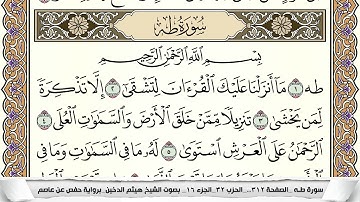 سُورَةُ طه
بِسْمِ اللَّهِ الرَّحْمَٰنِ الرَّحِيمِ
طه ١ مَا أَنزَلْنَا عَلَيْكَ الْقُرْءَانَ لِتَشْقَىٰ ٢ إِلَّا تَذْكِرَةً
لِّمَن يَخْشَىٰ ٣ تَنزِيلًا مِّمَّنْ خَلَقَ الْأَرْضَ وَالسَّمَٰوَٰتِ الْعُلَى ٤
الرَّحْمَٰنُ عَلَى الْعَرْشِ اسْتَوَىٰ ٥ لَهُ مَا فِي السَّمَٰوَٰتِ وَمَا فِي
سورة طـه _الصفحة ٣١٢_ الحزب ٣٢_ الجزء ١٦_ بصوت الشيخ هيثم الدخين_برواية حفص عن عاصم